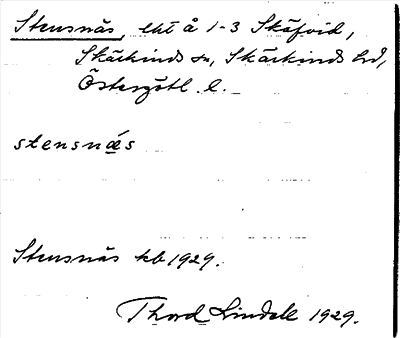 Stensnäs, lht å 1-3 Skäfvid,
Skärkinds sn, Skärkinds hd,
Östergötl. l.
stensnæ̀s
Stensnäs kb 1929.
Thord Lindell 1929.